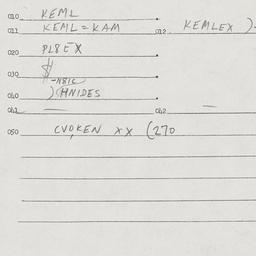 010 KEML
011 KEML=KAM 012 KEMLEX )-
020 PL8EX
030 $
-N81C
040 )CHNIDES
041 — 042 —
050 CVOKEN XX (270